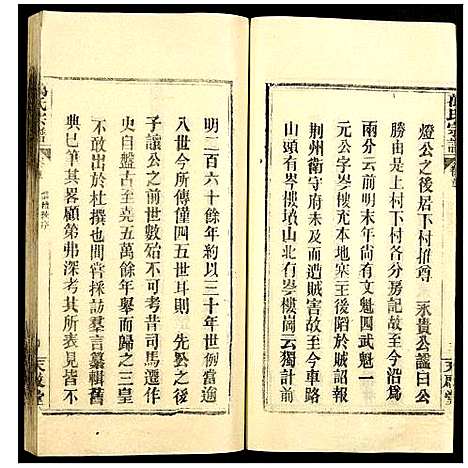 馮氏宗譜
燈公之後居下村推尊　永貴公謚曰公
勝由是上村下村各分房記故至今沿爲
兩分云前明末年尚有文魁四武魁一
元公字岑樓本地寨王後陷於賊詔報
荆州衛守府未及而遭賊害故今車路
山頭有岑樓墳山有岑樓崗云獨計前
明二百六十餘年約以三十年世例當逾
八世今所傳僅四五世耳則　先公之後
子讓公之前世數殆不可考昔司馬遷作
史自盤古至堯五萬餘年舉而歸之三皇
不敢出於杜撰也間嘗採訪羣言纂輯舊
典已筆其畧顧第弗深考其所表見皆不
天啟堂